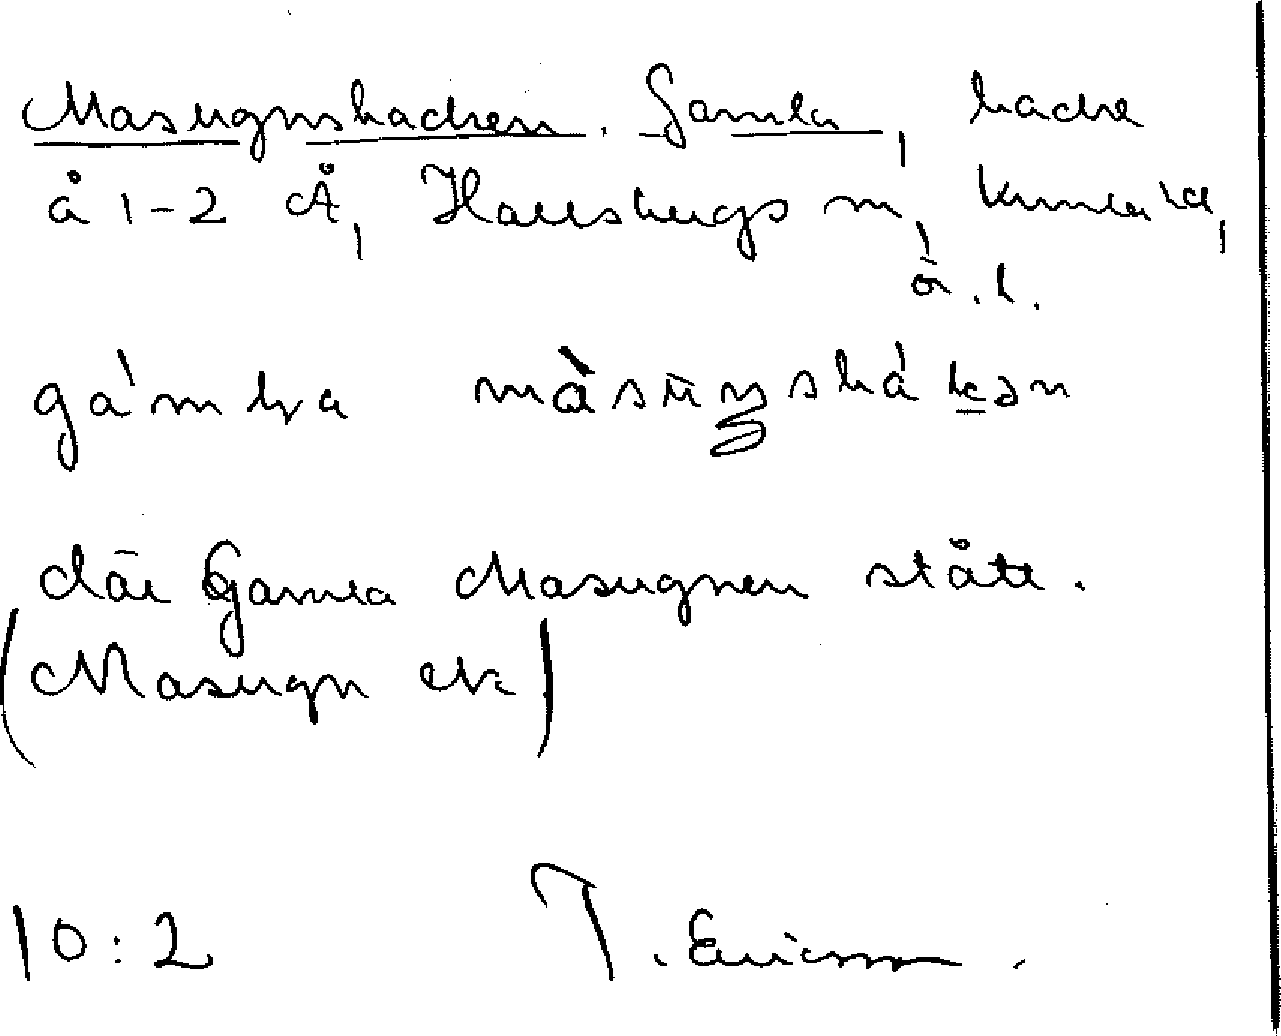 Masugnsbacken. Gamla, backe
å 1-2 Å, Hallsbergs sn, Kumla hd,
ö.l.
gá'mḷya màsūŋsbákən
där Gamla Masugnen stått.
(Masugn etc)
10:2 T. Ericsson.